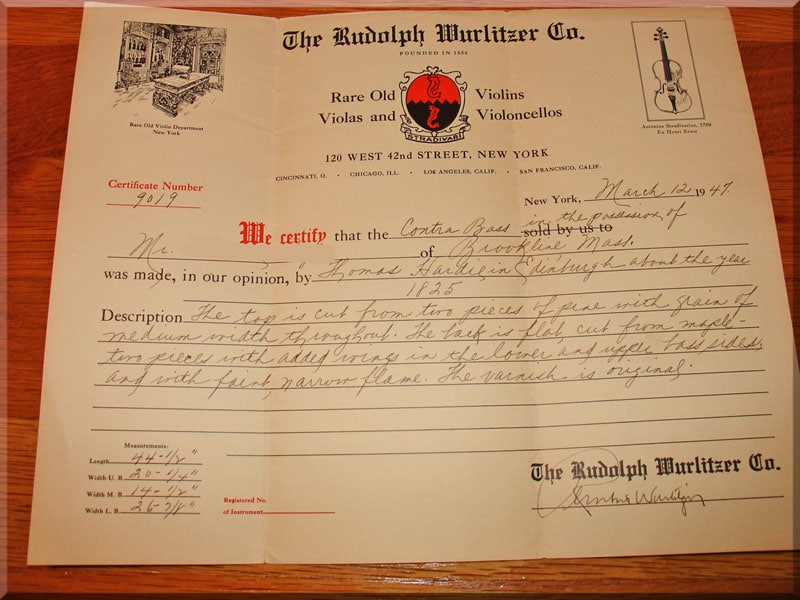 The Rudolph Wurlitzer Co.
FOUNDED IN 1856
Rare Old Violins
Violas and Violoncellos
STRADIVARI
120 WEST 42nd STREET, NEW YORK
CINCINNATI, O. • CHICAGO, ILL. • LOS ANGELES, CALIF. • SAN FRANCISCO, CALIF.
Rare Old Violin Department
New York
Antonius Stradivarius, 1709
Ex Henri Ernst
Certificate Number
9019
New York, March 12 1947.
We certify that the Contra Bass in the possession of sold by us to
Mr. of Brookline Mass.
was made, in our opinion, by Thomas Hardie in Edinburgh about the year
1825
Description The top is cut from two pieces of pine with grain of
medium width throughout. The back is flat, cut from maple -
two pieces with added wings in the lower and upper bass sides,
and with faint, narrow flame. The varnish is original.
Measurements:
Length 44-1/2"
Width U. B. 20-1/4"
Width M. B. 14-1/2"
Width L. B. 26-7/8"
Registered No.
of Instrument
The Rudolph Wurlitzer Co.
Wurlitzer